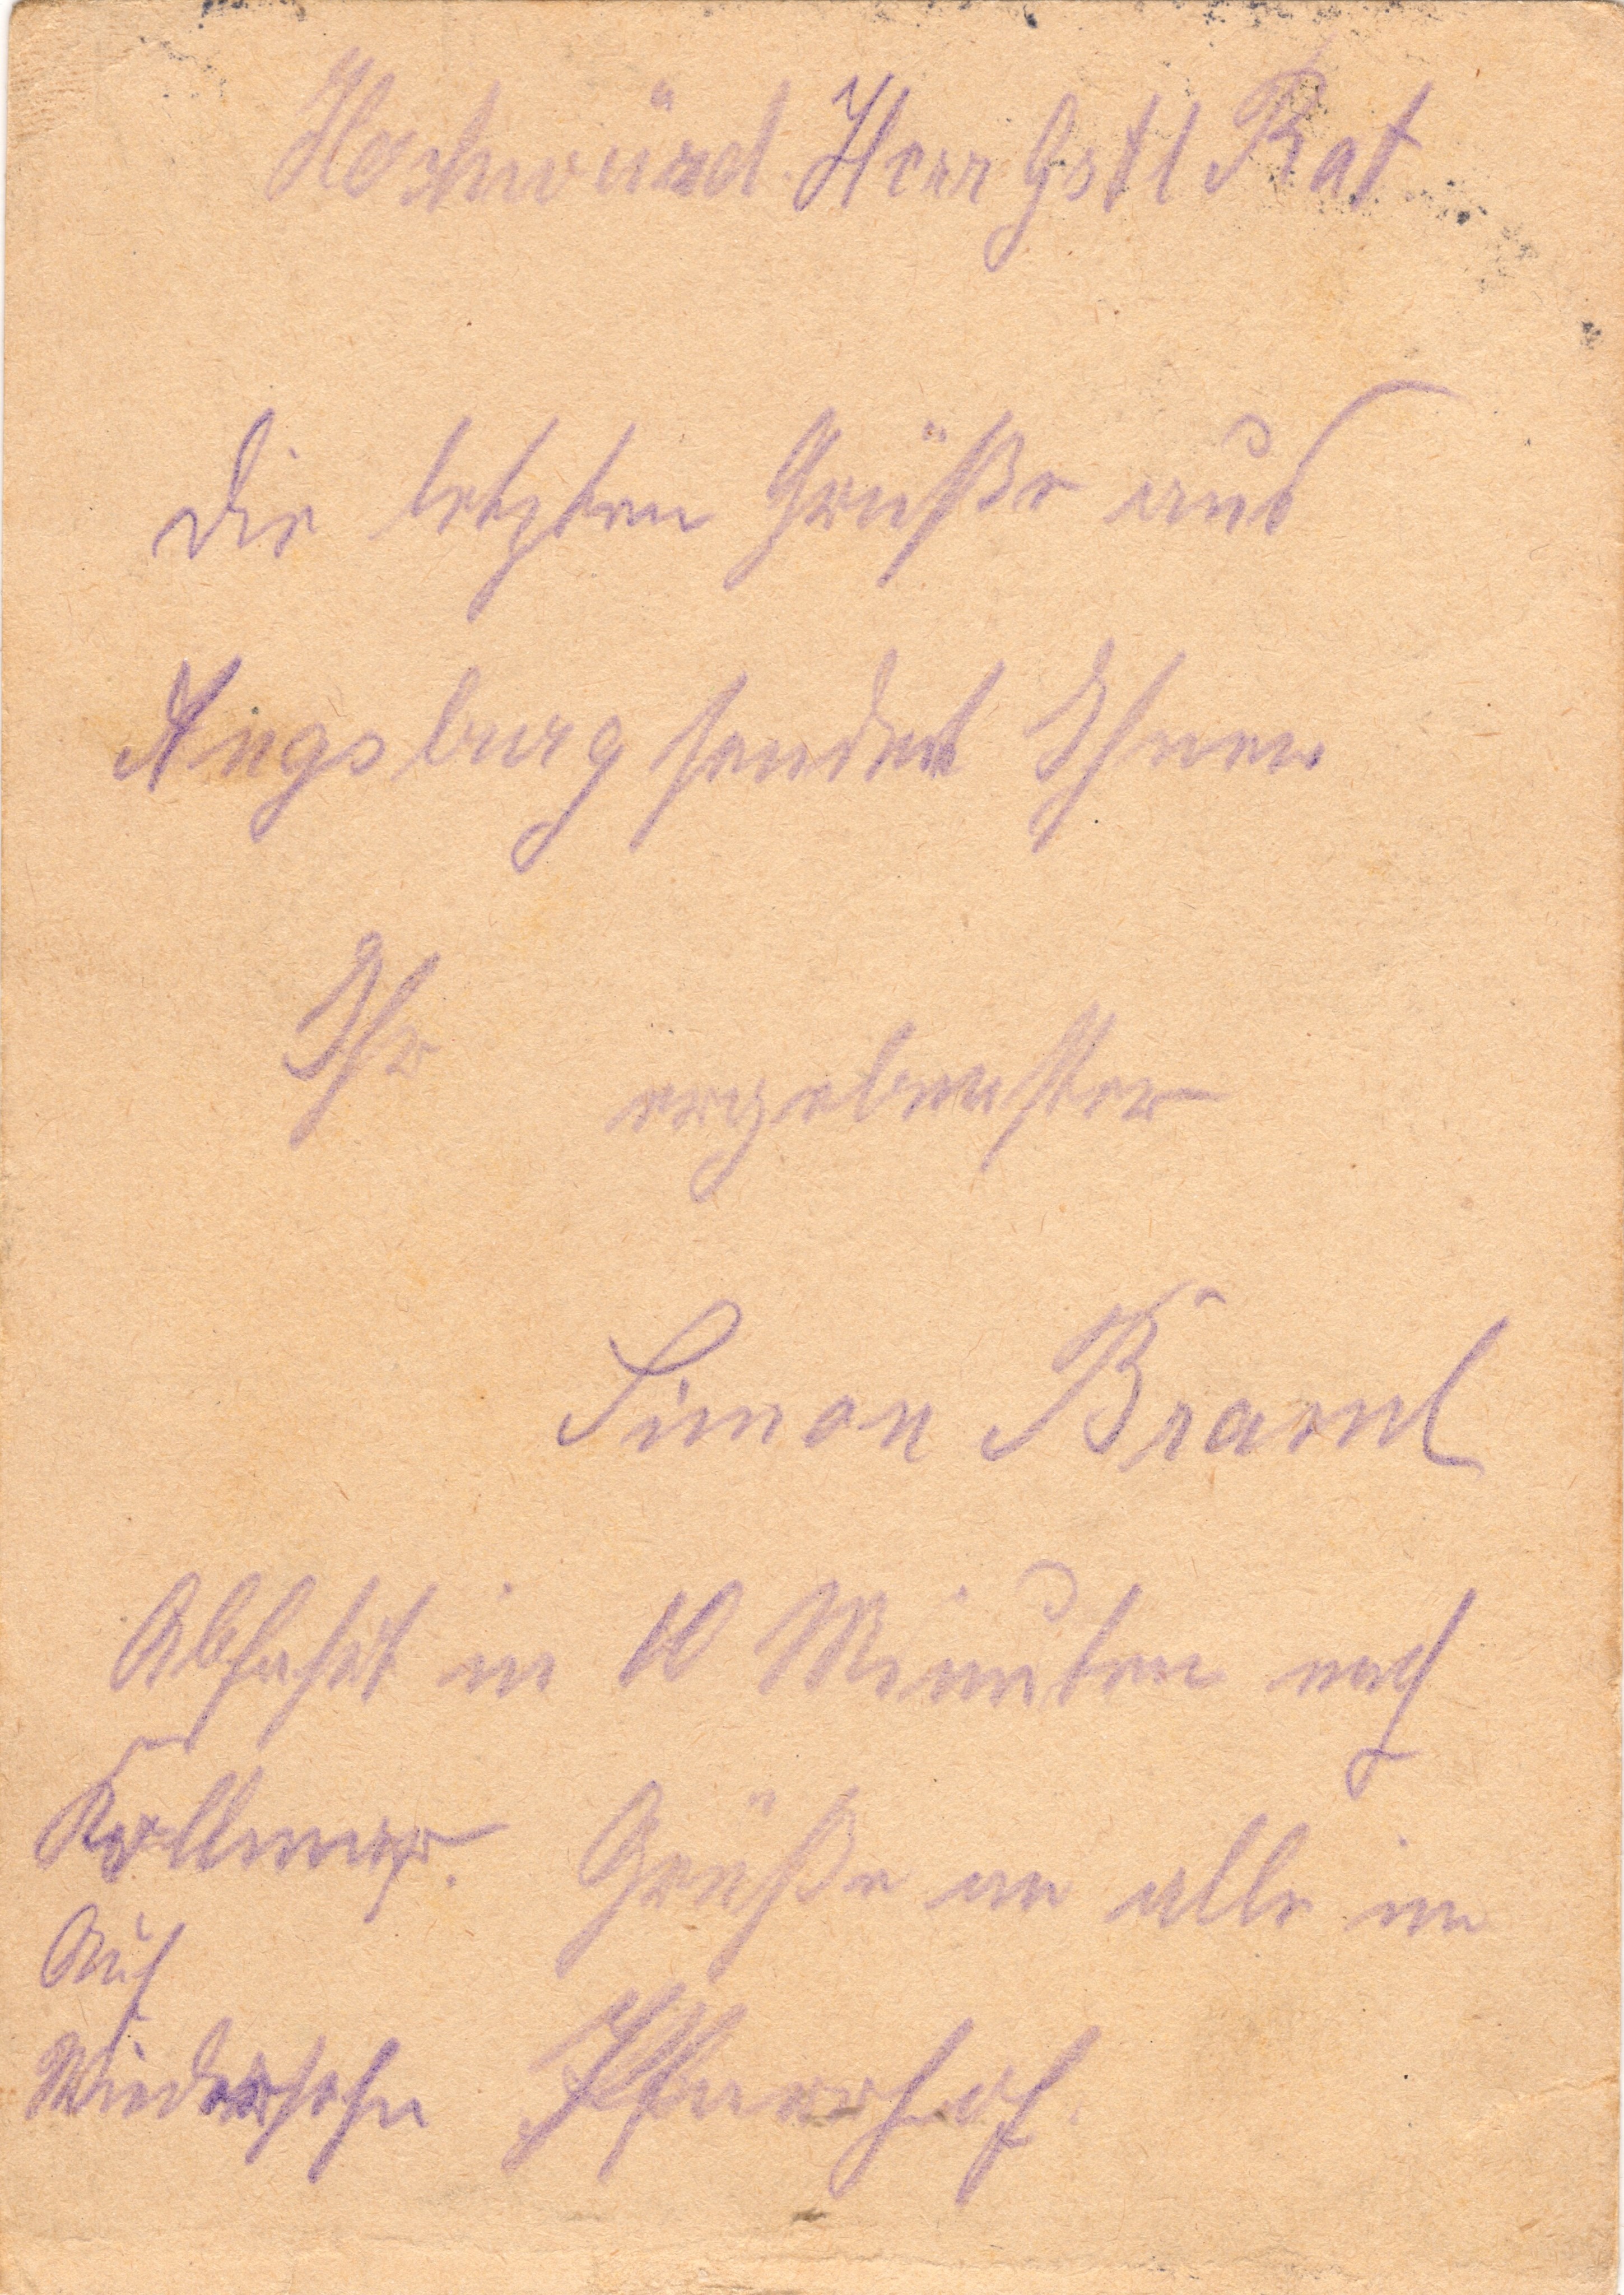 Hochwürd. Herr Gstl Rat
Die letzten Grüße aus
Augsburg sendet Ihnen
Ihr ergebenster
Simon
Abfahrt in 10 Minuten nach
Grüße an alle im
Auf
Wiedersehn Pfarrhof.